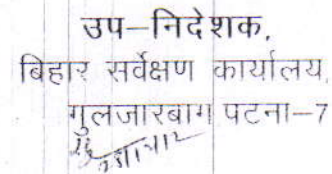 उप–निदेशक,
बिहार सर्वेक्षण कार्यालय,
गुलजारबाग पटना–7